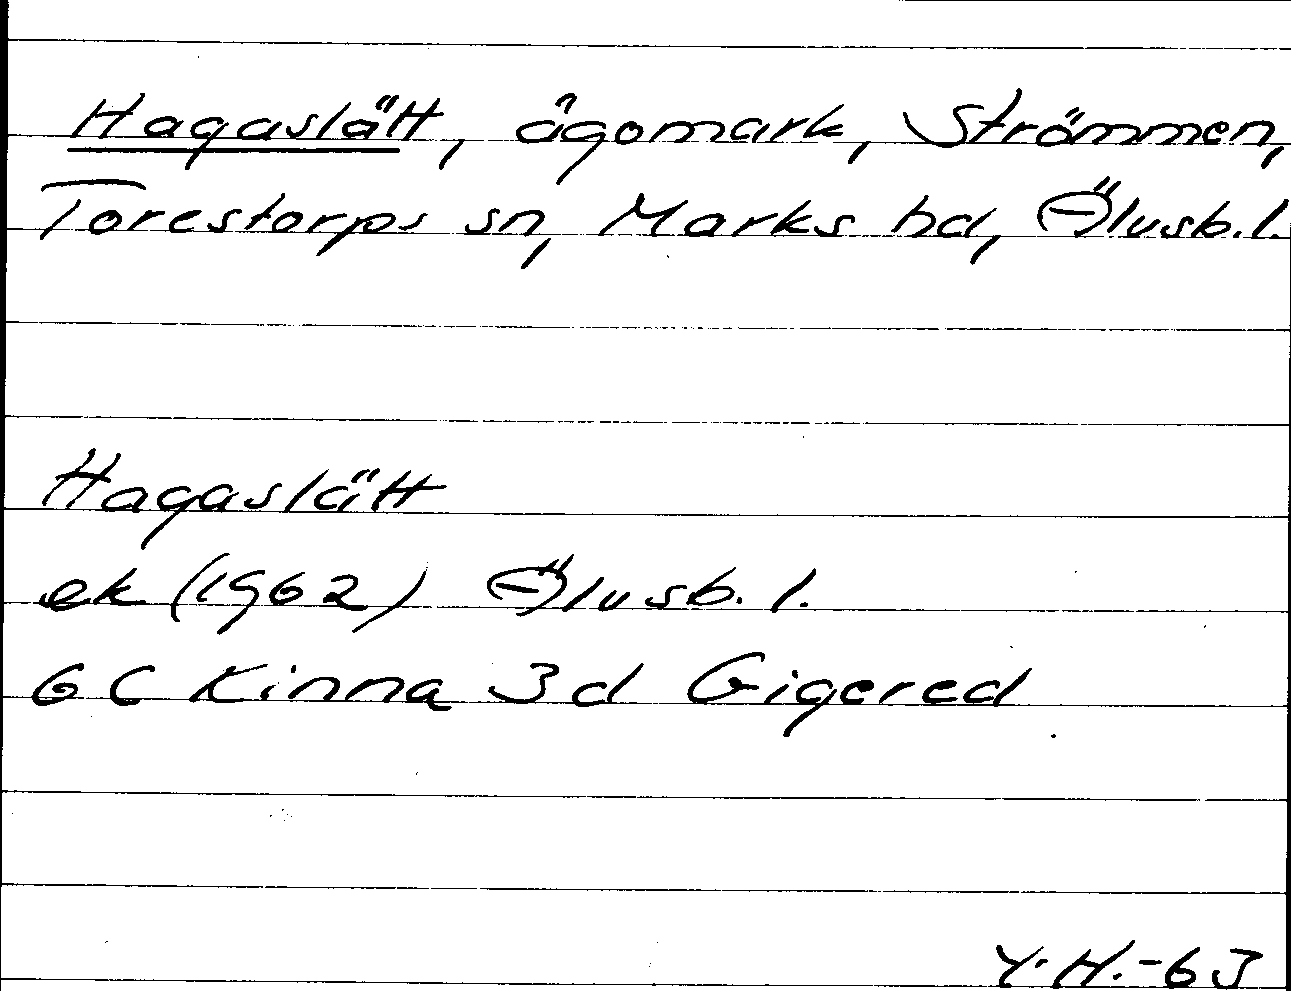 Hagaslätt, ägomark, Strömmen,
Torestorps sn, Marks hd, Älvsb. l.
Hagaslätt
ek (1962) Älvsb. l.
6 C Kinna 3d Gigered
Y. H. -63